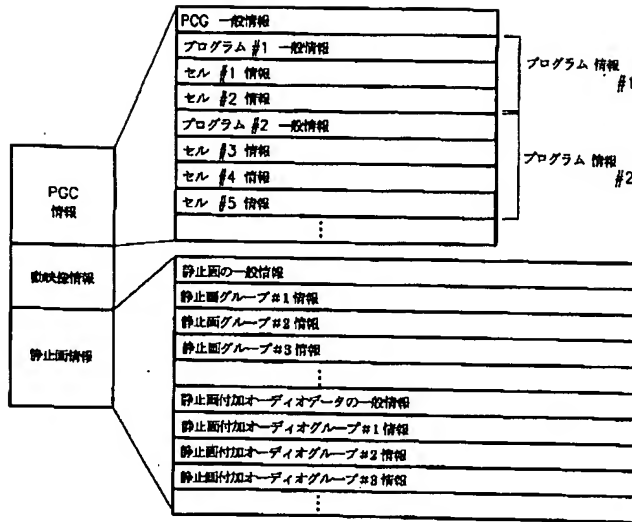 PCG 一般情報
プログラム #1 一般情報
セル #1 情報
セル #2 情報
プログラム #2 一般情報
セル #3 情報
セル #4 情報
セル #5 情報
⋮
プログラム 情報
#1
プログラム 情報
#2
PGC
情報
動映像情報
静止画情報
静止画の一般情報
静止画グループ#1情報
静止画グループ#2情報
静止画グループ#3情報
⋮
静止画付加オーディオデータの一般情報
静止画付加オーディオグループ#1情報
静止画付加オーディオグループ#2情報
静止画付加オーディオグループ#3情報
⋮